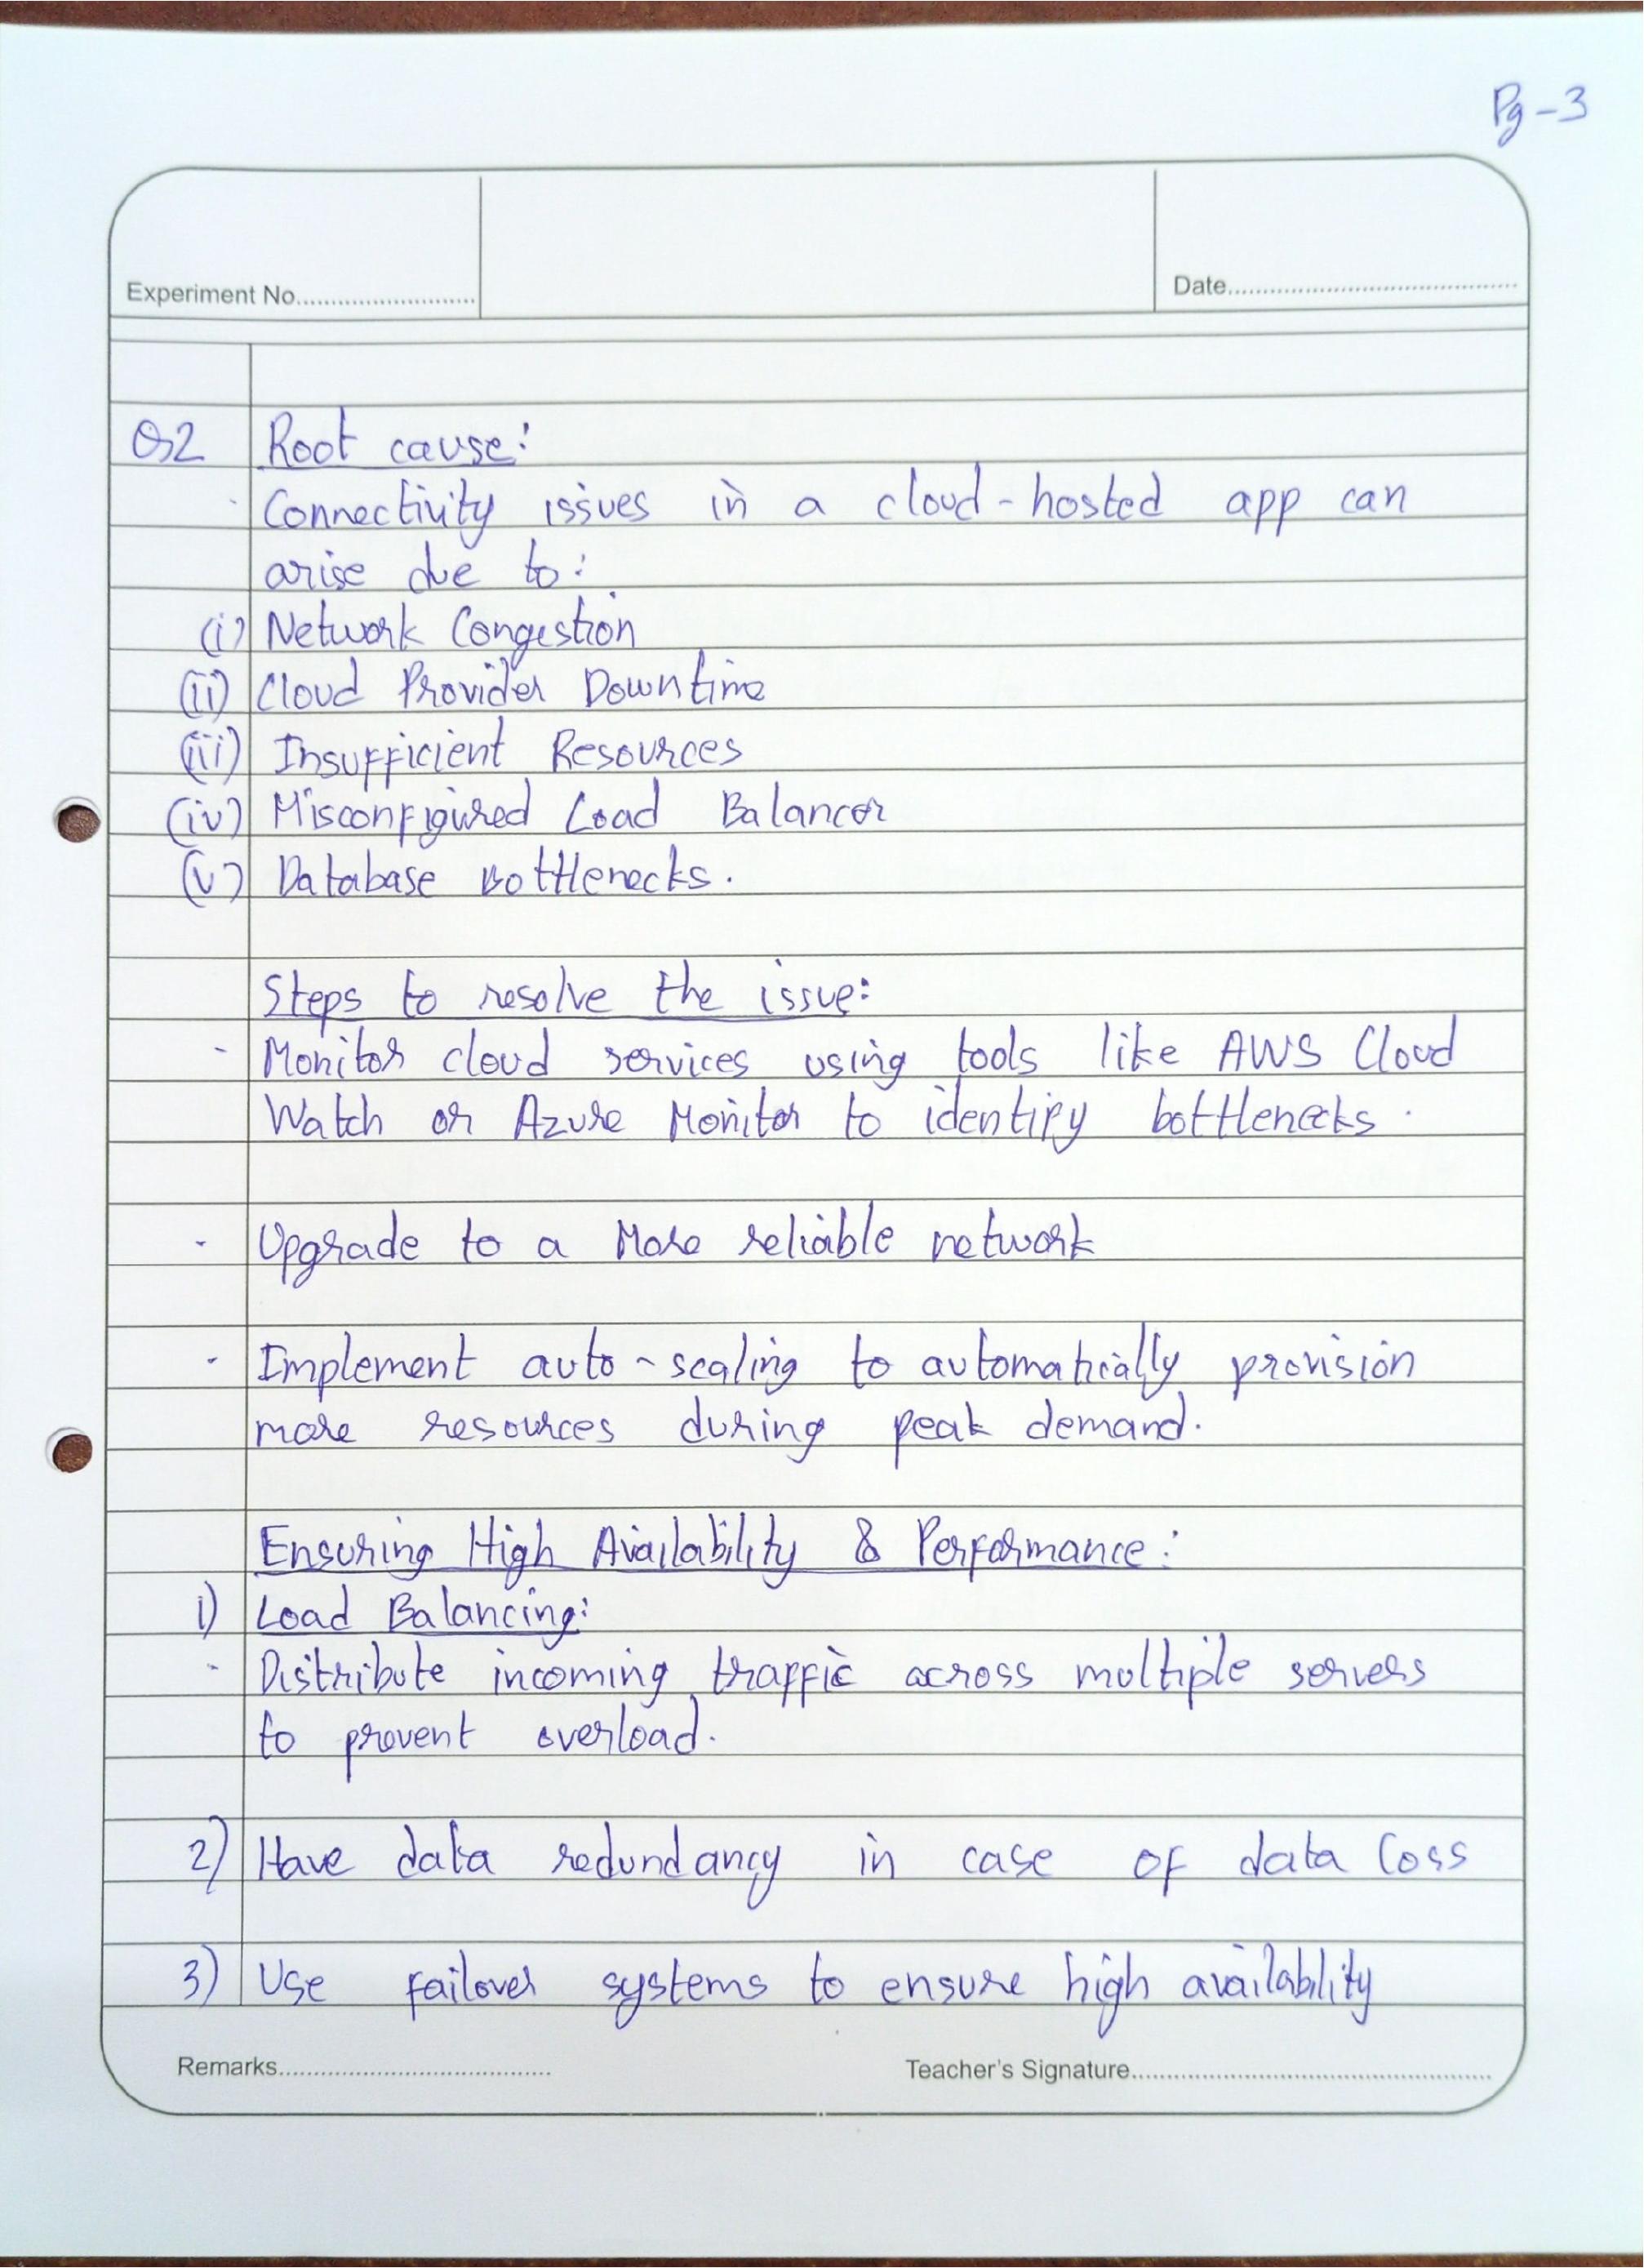 Pg-3
Experiment No.
Date
Q2 Root cause:
Connectivity issues in a cloud-hosted app can
arise due to:
(i) Network Congestion
(ii) Cloud Provider Downtime
(iii) Insufficient Resources
(iv) Misconfigured Load Balancer
(v) Database Bottlenecks.
Steps to resolve the issue:
- Monitor cloud services using tools like AWS Cloud
Watch or Azure Monitor to identify bottlenecks.
- Upgrade to a More reliable network
- Implement auto-scaling to automatically provision
more resources during peak demand.
Ensuring High Availability & Performance:
1) Load Balancing:
- Distribute incoming traffic across multiple servers
to prevent overload.
2) Have data redundancy in case of data loss
3) Use failover systems to ensure high availability
Remarks
Teacher's Signature